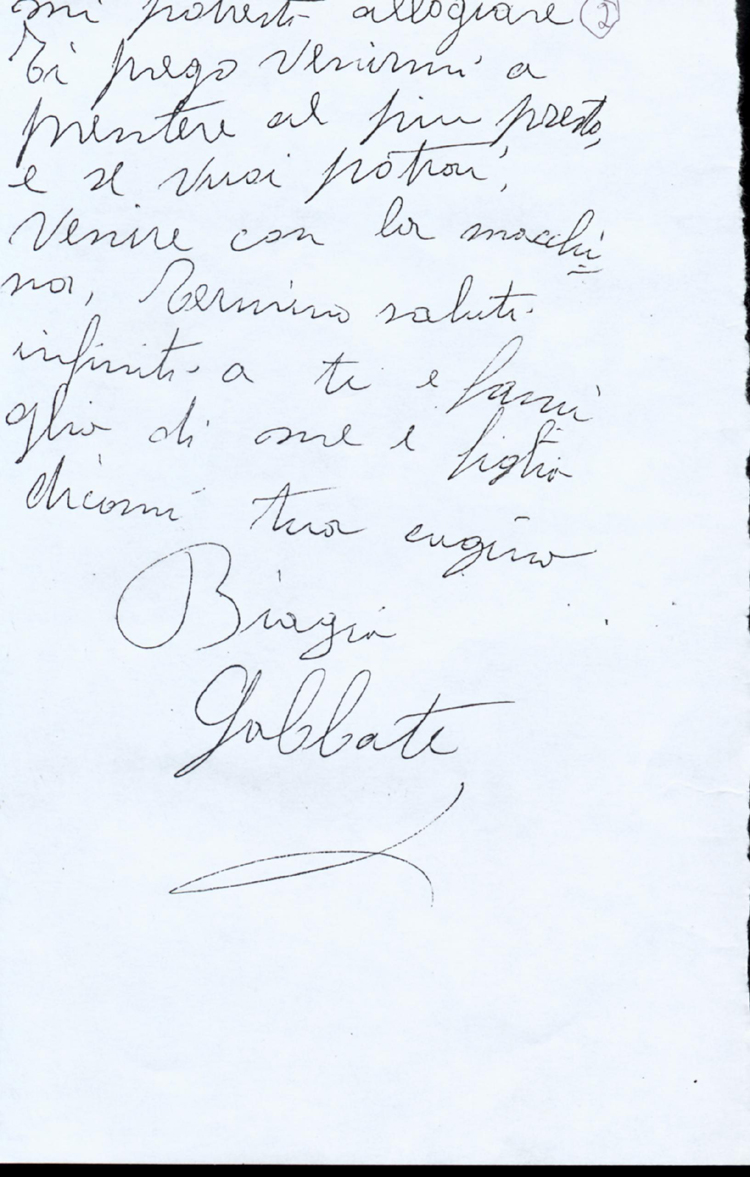 mi potresti allogiare 2
Ti prego venirmi a
prentere al piu presto,
e se vuoi potrai,
venire con la macchi
na, Termino saluti
infiniti a te e fami
glia di me e figlia
diconsi tuo cugino
Biagio
Gabbate